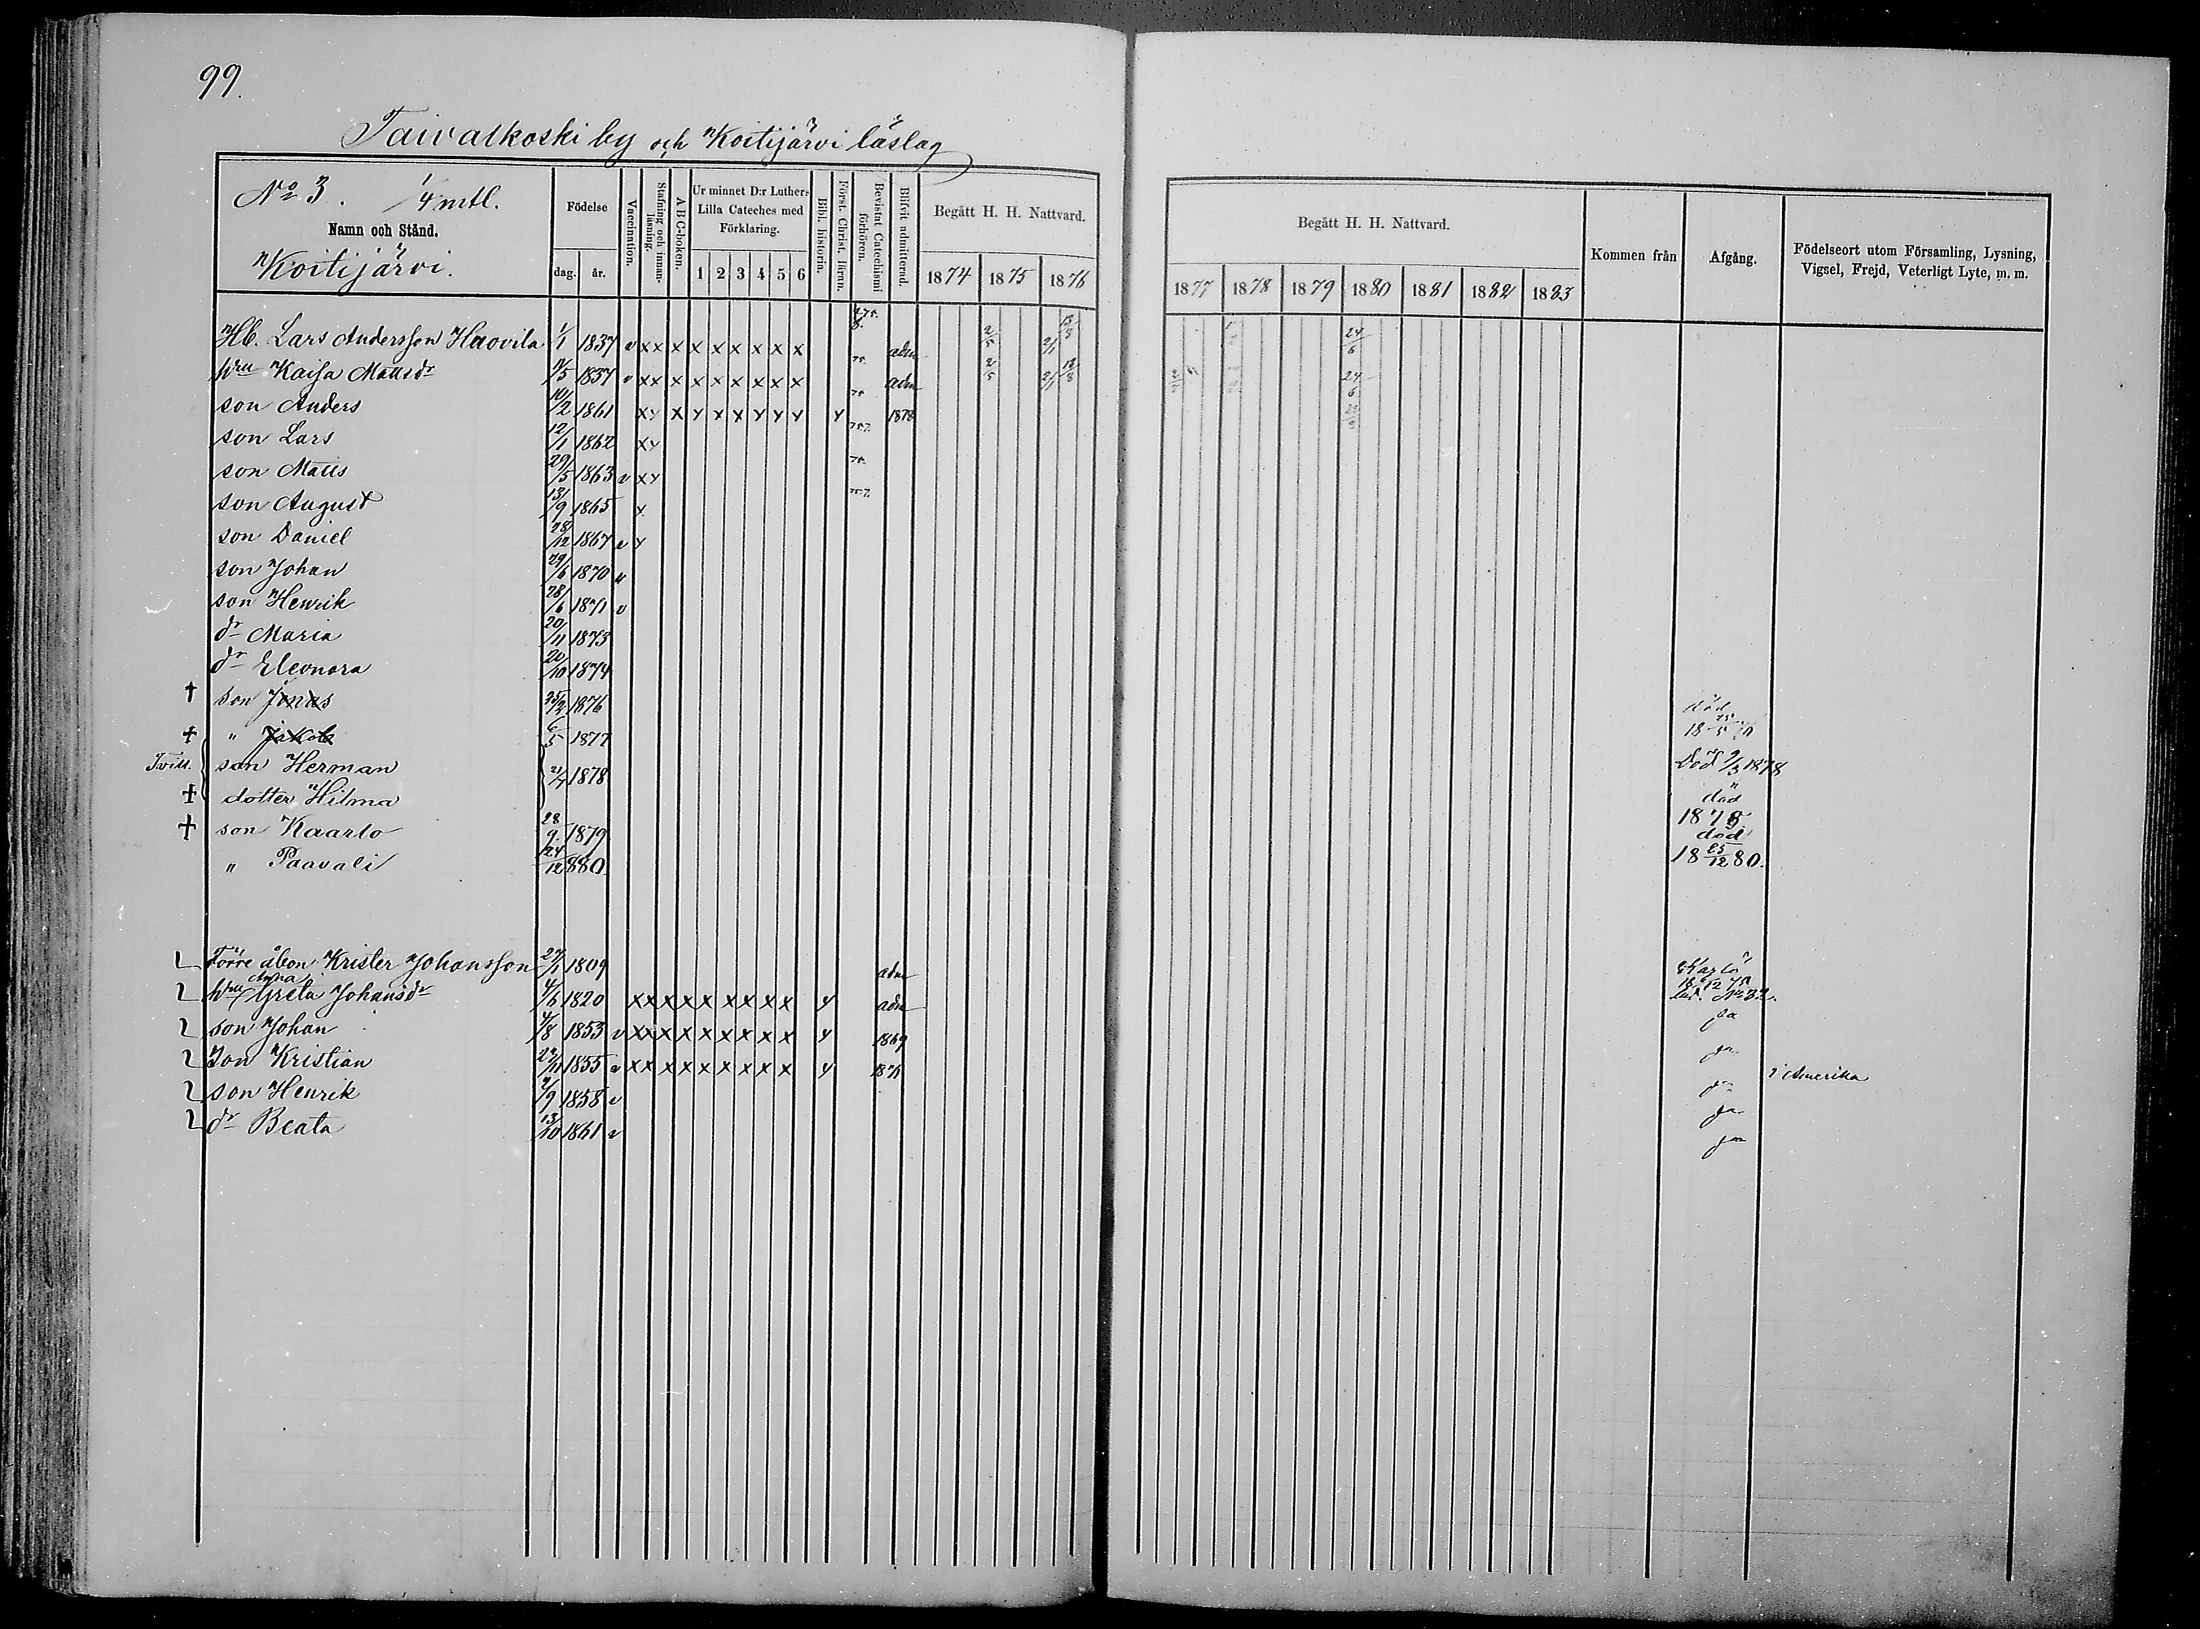 99.
Taivalkoski by och Koitijärvi läslag
No 3. 1/4 mtl.
Namn och Stånd.
Koitijärvi.
Födelse
dag. år.
Vaccination.
Stafning och innanläsning.
A B C-boken.
Ur minnet D:r Luthers Lilla Cateches med Förklaring.
1 2 3 4 5 6
Bibl. historia.
Först. Christ. läran.
Bevistat Catechismi förhören.
Blifvit admitterad.
Begått H. H. Nattvard.
1874 1875 1876
Begått H. H. Nattvard.
1877 1878 1879 1880 1881 1882 1883
Kommen från
Afgång.
Födelseort utom Församling, Lysning, Vigsel, Frejd, Veterligt Lyte, m. m.
Hb. Lars Andersson Haovila 1/1 1837 v x x x x x x x x x adm 2/5 2/1 13/8 24/6
hru Kaisa Mattsdr 1837 v x x x x x x x x x adm 2/5 2/1 24/6
son Anders 10/2 1861 x y x y x x y y y y 1878
son Lars 12/1 1862 x y
son Matts 29/5 1863 v x y
son August 13/9 1865 x
son Daniel 28/12 1867 v y
son Johan 29/6 1870 v
son Henrik 28/6 1871 v
dr Maria 20/11 1873
dr Eleonora 20/10 1874
† son Jonas 25/2 1876 död
† " Jakob 6/5 1877
Tvill. son Herman 21/7 1878 Död 9/3 1878
† dotter Hilma död 1878
† son Kaarlo 28/9 1879 död
" Paavali 24/12 1880 18 25/12 80.
Förre åbon Krister Johansson 27/1 1809 adm Karlö
hru Anna Greta Johansdr 4/6 1820 x x x x x x x x x y adm No 32.
son Johan 4/8 1853 v x x x x x x x x x y 1869 ja
Son Kristian 27/11 1855 v x x x x x x x x x y 1871 ja i Amerika
son Henrik 2/9 1858 v ja
dr Beata 13/10 1861 v ja